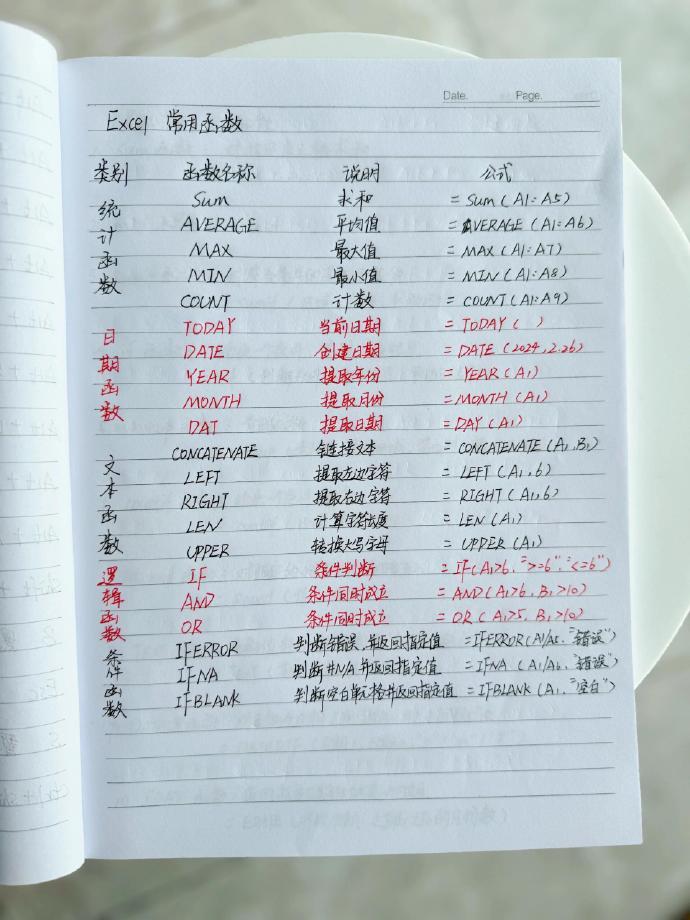 Date. Page.
Excel 常用函数
类别 函数名称 说明 公式
统计函数
Sum 求和 = Sum(A1:A5)
AVERAGE 平均值 = AVERAGE(A1:A6)
MAX 最大值 = MAX(A1:A7)
MIN 最小值 = MIN(A1:A8)
COUNT 计数 = COUNT(A1:A9)
日期函数
TODAY 当前日期 = TODAY( )
DATE 创建日期 = DATE(2024,2.26)
YEAR 提取年份 = YEAR(A1)
MONTH 提取月份 = MONTH(A1)
DAT 提取日期 = DAY(A1)
文本函数
CONCATENATE 链接文本 = CONCATENATE(A1,B1)
LEFT 提取左边字符 = LEFT(A1,6)
RIGHT 提取右边字符 = RIGHT(A1,6)
LEN 计算字符长度 = LEN(A1)
UPPER 转换大写字母 = UPPER(A1)
逻辑函数
IF 条件判断 = IF(A1>6,">=6","<=6")
AND 条件同时成立 = AND(A1>6,B1>10)
OR 条件同时成立 = OR(A1>5,B1>10)
条件函数
IFERROR 判断错误,并返回指定值 =IFERROR(A1/A6,"错误")
IFNA 判断#N/A并返回指定值 =IFNA(A1/A6,"错误")
IFBLANK 判断空白单元格并返回指定值 =IFBLANK(A1,"空白")